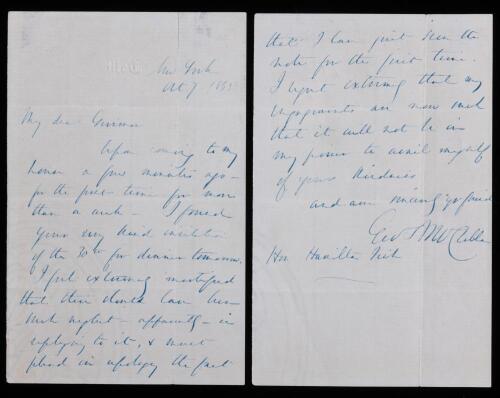 New York
Oct 7
My dear Governor
Upon coming to my
house a few minutes ago -
for the first time for more
than a week - I found
your very kind invitation
of the 30th for dinner tomorrow.
I feel extremely mortified
that there should have been
such neglect - apparently - in
replying to it, & must
plead in apology the fact
that I have just seen the
note for the first time.
I regret extremely that my
engagements are now such
that it will not be in
my power to avail myself
of your kindness
and am sincerely yr friend
Geo B McClellan
Hon Hamilton Fish